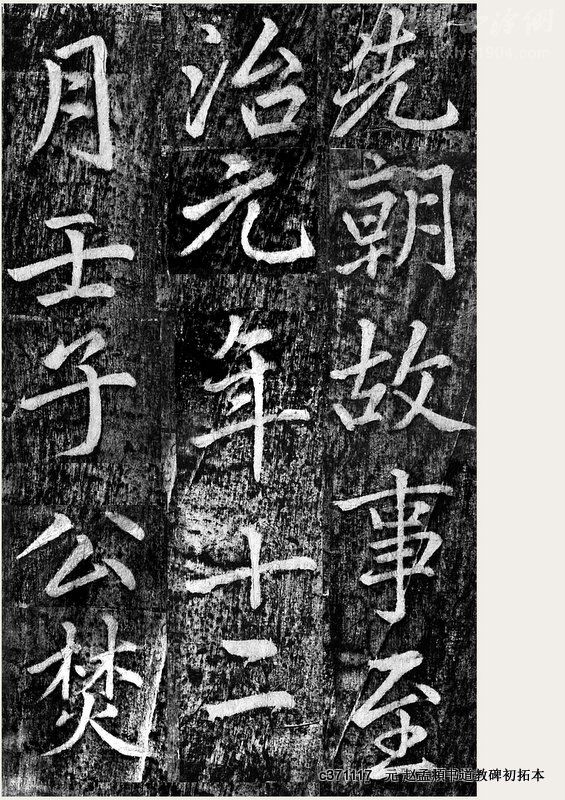 先朝故事至
治元年十二
月壬子公焚
c371117 元 赵孟頫书道教碑初拓本